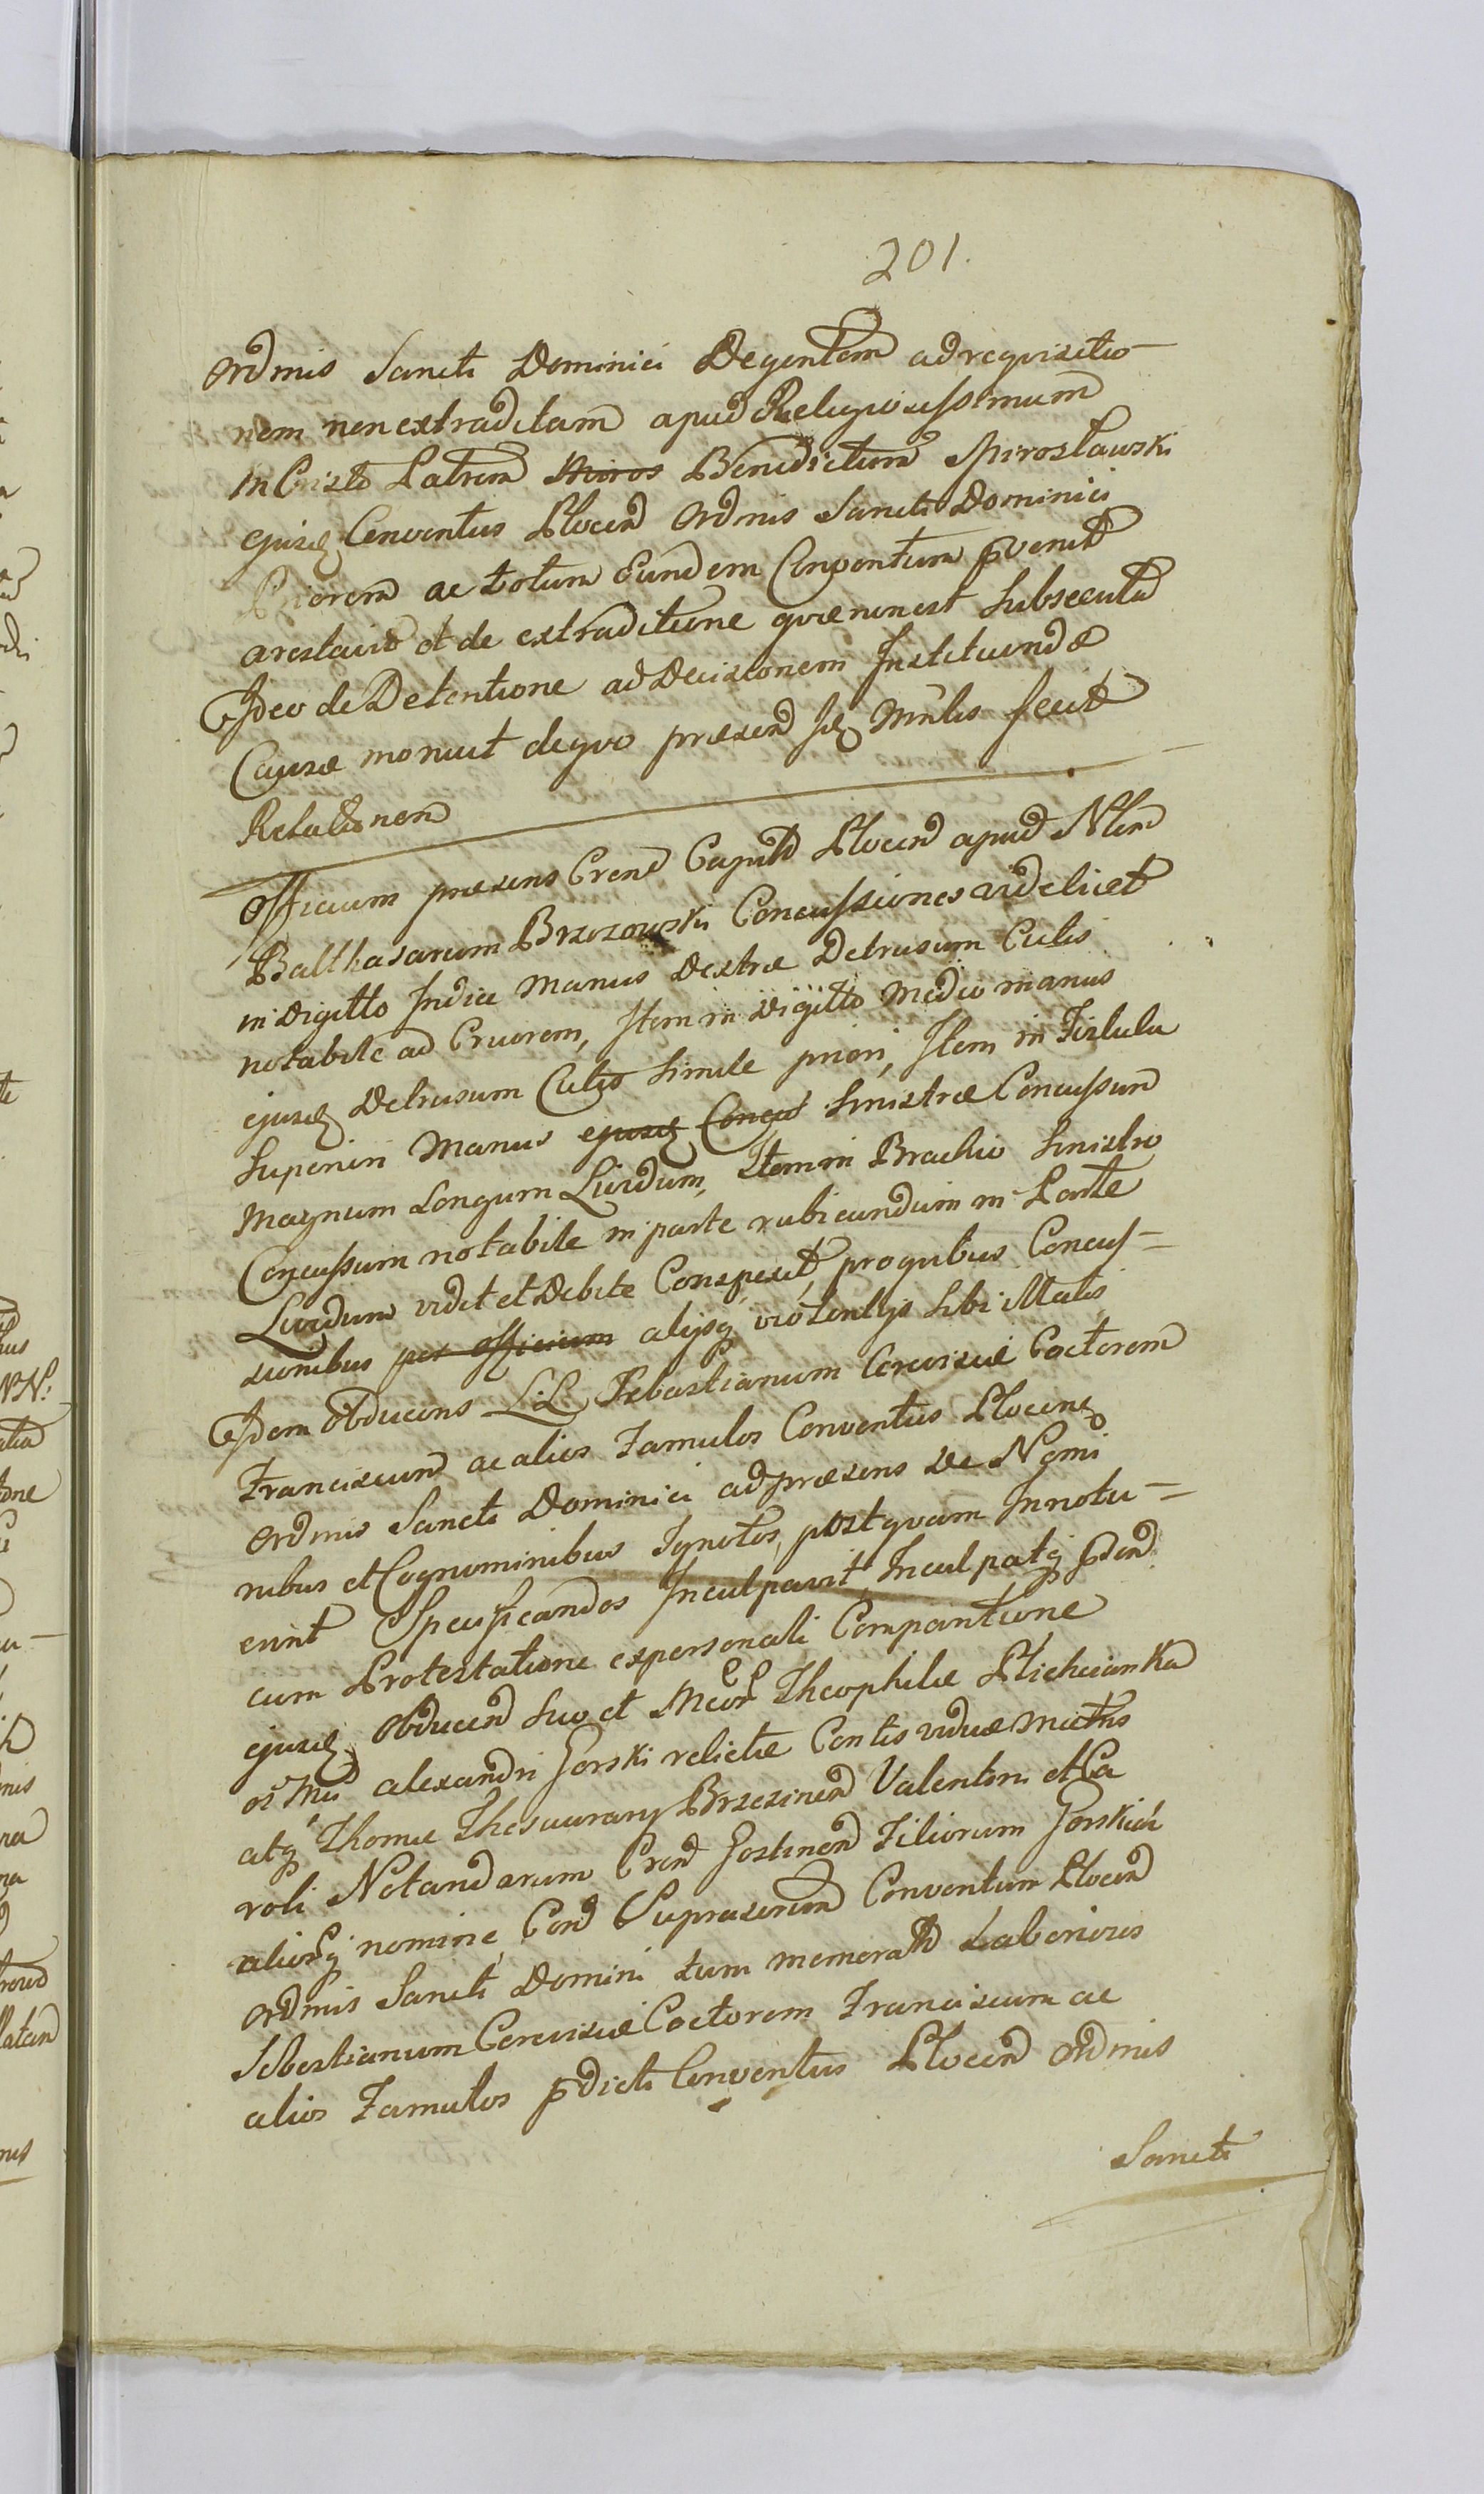 201.
Ordinis Sancti Dominici Degentem ad requisitio-
nem non extraditam apud Religiosissimum
in Cristo Patrem Benedictum Spirosławski
ejusq Conventus Plocen Ordinis Sancti Dominici
Priorem ac totum Eundem Conventum pvenit
arestavit et de extraditione quæ non est Subsecuta
Ideo de Detentione ad Decisionem Instituendæ
Causæ monuit de quo præsen sq Mnlis fecit
Relationem
Officium præsens Cren Capitl Plocen apud Nlem
Balthasarum Brzozowski Concussiones videlicet
in Digitto Indice Manus Dextræ Detrusum Cutis
notabile ad Cruorem, Item in Digitto Medio manus
ejusq Detrusum Cutis Simile priori, Item in Fistula
Superiori Manus ejusq Concus Sinistræ Concussum
Magnum Longum Lividum, Item in Brachio Sinistro
Concussum notabile in parte rubicundum in Parte
Lividum vidit et Debite Conspexit, pro quibus Concus-
sionibus per officium alijsq violentijs Sibi illatis
Idem Obducens L:L Sebastianum Cerevisiæ Coctorem
Franciscum ac alios Famulos Conventus Plocens
Ordinis Sancti Dominici ad præsens de Nomi
nibus et Cognominibus Ignotos, postquam Innotu-
erint Specificandos Inculpavit, Inculpatq pden
cum Protestatione ex personali Comparitione
ejusq Obducen suo et Mcor Theophilæ Plichcianka
ol Mci Alexandri Gorski relictæ Contis viduæ Matris
atq Thomæ Thesaurary Brzezinen Valentini et Ca
roli Notandarum Cren Gostinen Filiorum Gorskich
aliorq nomine, Con Suprascrum Conventum Plocen
Ordinis Sancti Domini tum memorat Laboriosos
Sebestianum Cerevisiæ Coctorem Franciscum ac
alios Famulos pdicti Conventus Plocen Ordinis
Sancti